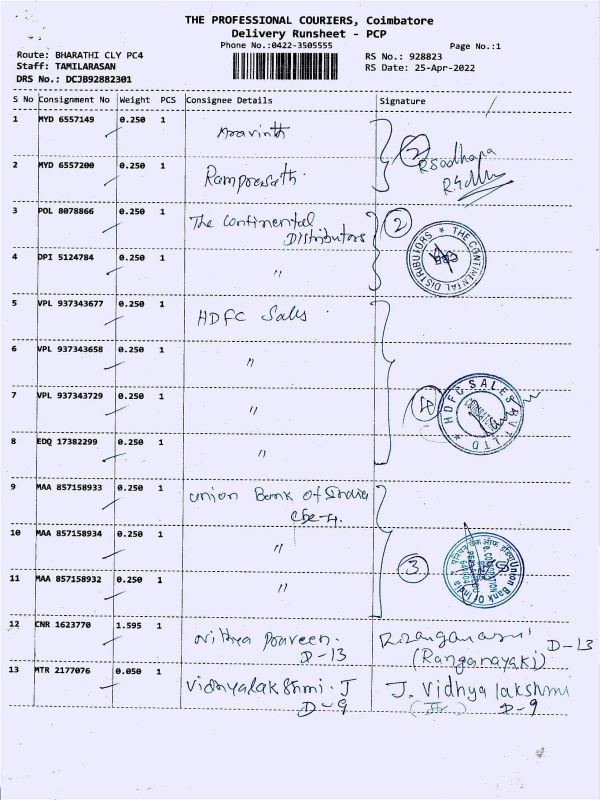 THE PROFESSIONAL COURIERS, Coimbatore
Delivery Runsheet - PCP
Phone No.:0422-3505555
Page No.:1
Route: BHARATHI CLY PC4
RS No.: 928823
Staff: TAMILARASAN
RS Date: 25-Apr-2022
DRS No.: DCJB92882301
S No Consignment No Weight PCS Consignee Details Signature
1 MYD 6557149 0.250 1 Aravinth
2 MYD 6557200 0.250 1 Ramprasath
2
3 POL 8078866 0.250 1 The Continental Distributors
2
THE CONTINENTAL DISTRIBUTORS
CBE
4 DPI 5124784 0.250 1 "
5 VPL 937343677 0.250 1 HDFC Sales
6 VPL 937343658 0.250 1 "
7 VPL 937343729 0.250 1 "
4
HDFC SALES PVT LTD
8 EDQ 17382299 0.250 1 "
9 MAA 857158933 0.250 1 Union Bank of India
Cbe-4.
10 MAA 857158934 0.250 1 "
3
Union Bank Of India
11 MAA 857158932 0.250 1 "
12 CNR 1623770 1.595 1 Nithya Praveen. D-13
(Ranganayaki) D-13
13 MTR 2177076 0.050 1 Vidhyalakshmi. J D-9
J. Vidhya lakshmi
D-9